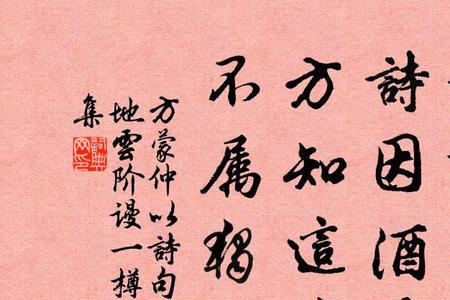 詩因酒
方知這
不属獨
方蒙仲以詩句
地雲阶谩一樽
集
詞典網